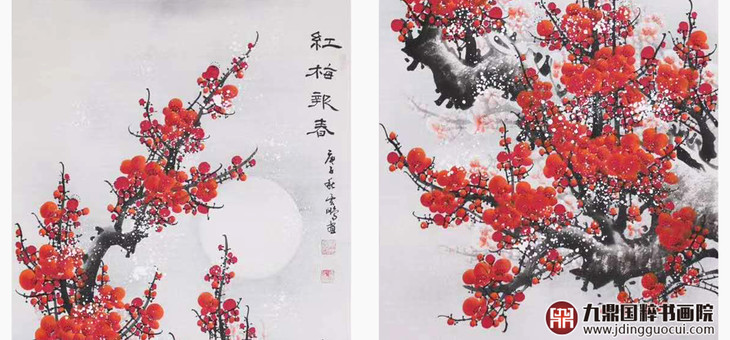 紅梅報春
庚子秋雲鹏畫
九鼎国粹书画院
www.jdingguocui.com